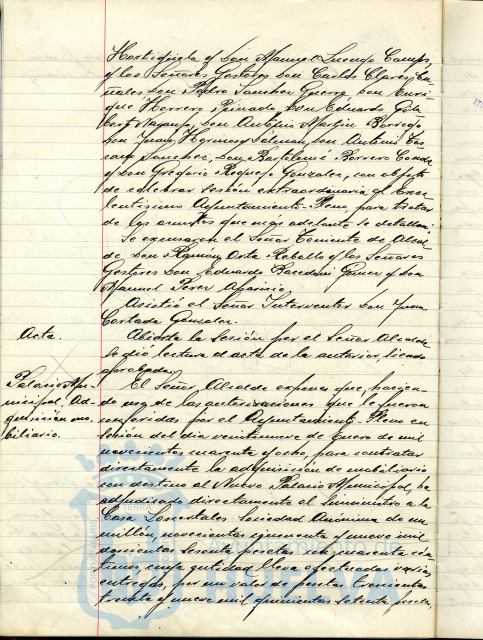 Hortigüela y Don Manuel Lucena Camps,
y los Señores Gestores Don Carlos
Don Pedro Sanchez Don Enri-
que Herrero Peinado, Don Eduardo
Don Antonio Martin
Don Juan Don Antonio
Sanchez, Don Bartolomé Borrero Conde
y Don Gregorio Requejo Gonzalez, con objeto
de celebrar sesión extraordinaria el Exce-
lentísimo Ayuntamiento-Pleno para tratar
de los asuntos que más adelante se detallan.
Se excusaron el Señor Teniente de Alcal-
de Don Roman Rebollo y los Señores
Gestores Don Eduardo Gomez y Don
Manuel Perez Aparicio.
Asistió el Señor Interventor Don Juan
Cortada Gonzalez.
Acta.
Abierta la sesión por el Señor Alcalde
se dió lectura al acta de la anterior, siendo
aprobada.
Palacio Mu-
nicipal, Ad-
quisición mo-
biliario.
El Señor Alcalde expuso que, hacien-
do uso de las autorizaciones que le fueron
conferidas por el Ayuntamiento-Pleno en
sesión del día veintinueve de Enero de mil
novecientos cuarenta y ocho, para contratar
directamente la adquisición de mobiliario
con destino al Nuevo Palacio Municipal, ha
adjudicado directamente el suministro a la
Casa Loscertales Sociedad Anónima de un
millón, novecientas cincuenta y nueve mil
doscientas sesenta pesetas con cuarenta cén-
timos, cuya entidad lleva efectuadas varias
entregas, por un valor de pesetas trescientas
treinta y nueve mil quinientas setenta pesetas,
HUELVA